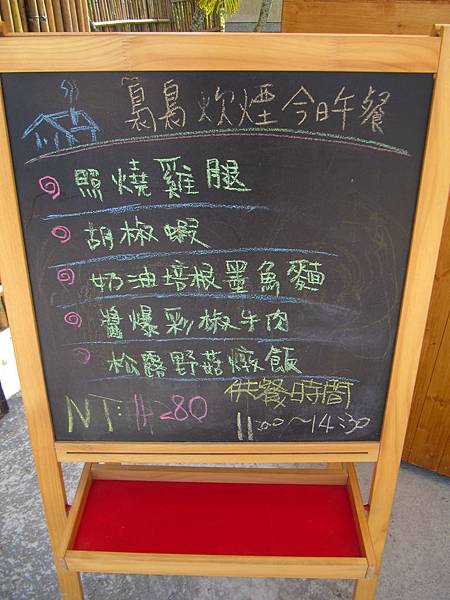 裊裊炊煙今日午餐
照燒雞腿
胡椒蝦
奶油培根墨魚麵
醬爆彩椒牛肉
松露野菇燉飯
NT: 280
供餐時間
11:00~14:30